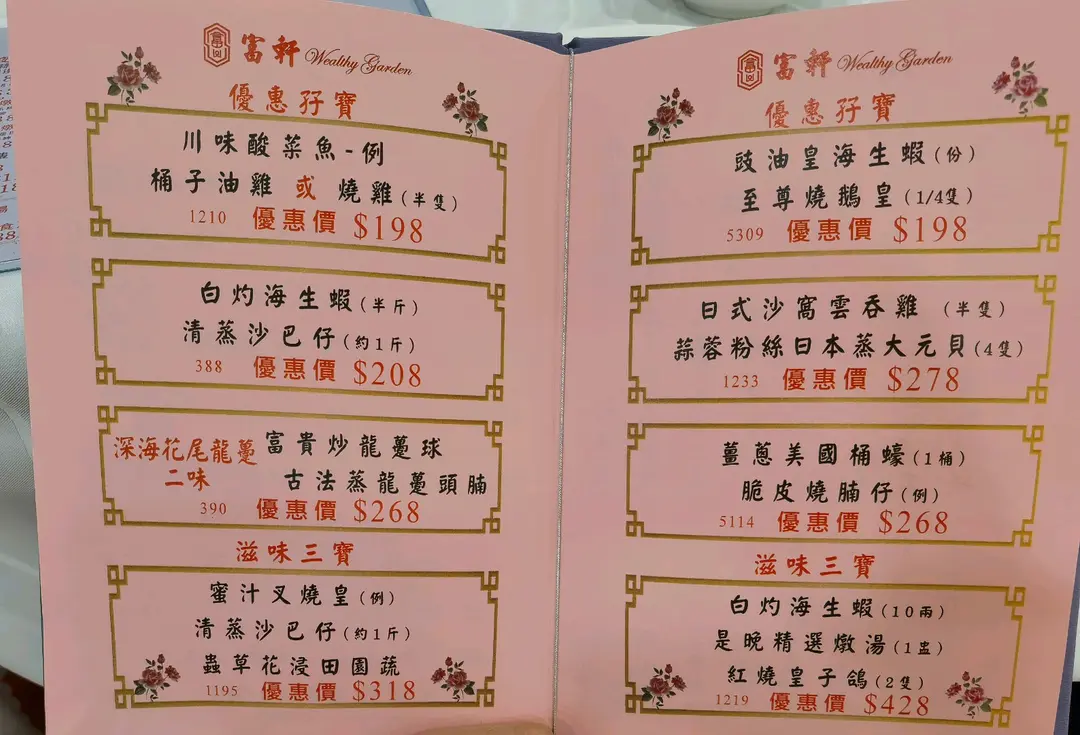 富軒 Wealthy Garden
優惠孖寶
川味酸菜魚-例
桶子油雞 或 燒雞(半隻)
1210 優惠價 $198
白灼海生蝦(半斤)
清蒸沙巴仔(約1斤)
388 優惠價 $208
深海花尾龍躉 富貴炒龍躉球
二味 古法蒸龍躉頭腩
390 優惠價 $268
滋味三寶
蜜汁叉燒皇(例)
清蒸沙巴仔(約1斤)
蟲草花浸田園蔬
1195 優惠價 $318
富軒 Wealthy Garden
優惠孖寶
豉油皇海生蝦(份)
至尊燒鵝皇(1/4隻)
5309 優惠價 $198
日式沙窩雲吞雞 (半隻)
蒜蓉粉絲日本蒸大元貝(4隻)
1233 優惠價 $278
薑蔥美國桶蠔(1桶)
脆皮燒腩仔(例)
5114 優惠價 $268
滋味三寶
白灼海生蝦(10兩)
是晚精選燉湯(1盅)
紅燒皇子鴿(2隻)
1219 優惠價 $428